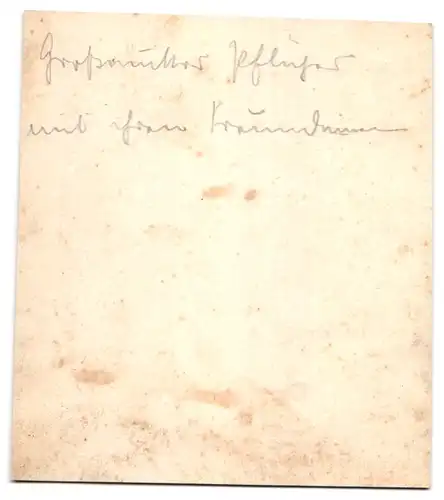 Großmutter Pflüger
mit ihren Freundinnen